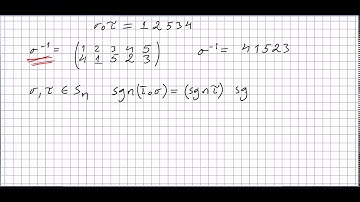 r₀ τ = 1 2 5 3 4
σ⁻¹ = ( 1 2 3 4 5 ) σ⁻¹ = 4 1 5 2 3
( 4 1 5 2 3 )
σ, τ ∈ Sₙ sgn(τ∘σ) = (sgn τ) sg